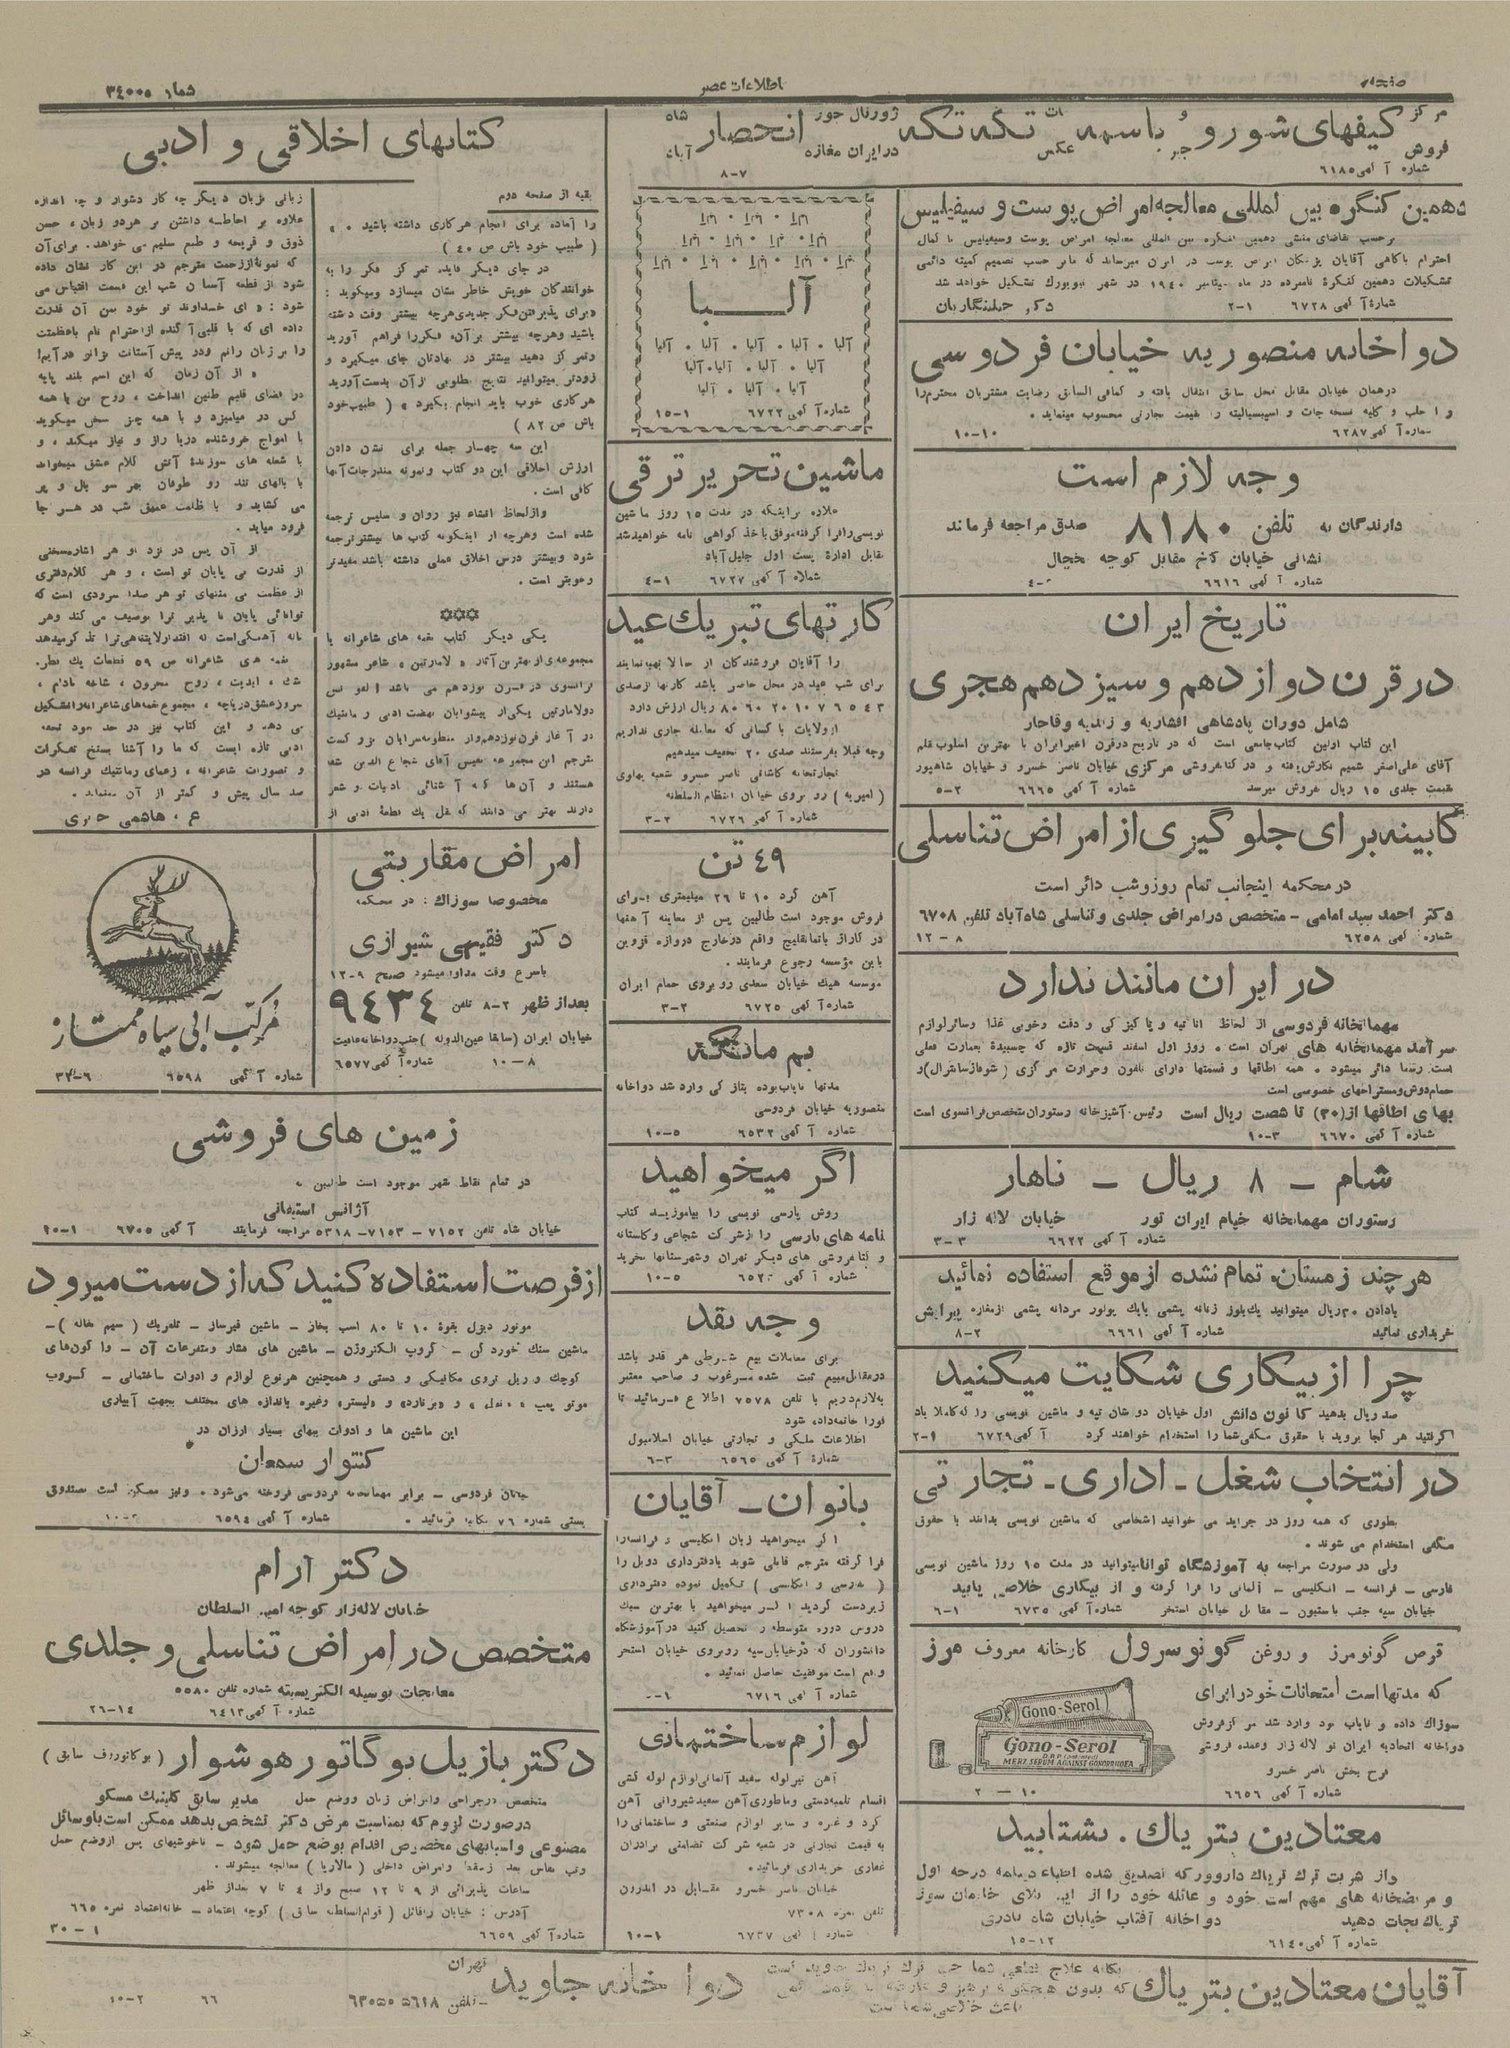 اطلاعات عصر
مرکز فروش کیفهای شورو و باسمه تکه تکه ژورنال انحصار در ایران مغازه شاه آباد
شماره آگهی ۶۱۸۵
۷-۸
دهمین کنگره بین المللی معالجه امراض پوست و سیفیلیس
احترام باگاهی آقایان پزشکان امراض پوست در ایران میرساند که
تشکیلات دهمین کنگره نامبرده در ماه سپتامبر ۱۹۴۰ در شهر نیویورک تشکیل خواهد شد
شماره آگهی ۶۷۲۸ ۲-۱
دواخانه منصوریه خیابان فردوسی
درهمان خیابان مقابل محل سابق انتقال یافته و کمافی السابق رضایت مشتریان محترم را
و اجلب و کلیه نسخه جات و اسپسیالیته را بقیمت تجارتی محسوب مینماید .
شماره آگهی ۶۲۸۷ ۱۰-۱۰
وجه لازم است
دارندگان به تلفن ۸۱۸۰ صدق مراجعه فرمایند
نشانی خیابان کاخ مقابل کوچه یخچال
شماره آگهی ۶۶۱۶
تاریخ ایران
در قرن دوازدهم و سیزدهم هجری
شامل دوران پادشاهی افشاریه و زندیه و قاجار
این کتاب اولین کتاب جامعی است که در تاریخ دو قرن اخیر ایران با بهترین اسلوب بقلم
آقای علی اصغر شمیم نگارش یافته و در کتابفروشی مرکزی خیابان ناصر خسرو و خیابان شاهپور
بقیمت جلدی ۱۵ ریال بفروش میرسد شماره آگهی ۶۶۶۵ ۵-۲
کابینه برای جلوگیری از امراض تناسلی
در محکمه اینجانب تمام روز و شب دائر است
دکتر احمد سید امامی - متخصص در امراض جلدی و تناسلی شاه آباد تلفن ۶۷۰۸
شماره آگهی ۶۲۵۸ ۱۲-۸
در ایران مانند ندارد
مهمانخانه فردوسی از لحاظ اثاثیه و پاکیزگی و دقت و خوبی غذا و سائر لوازم
سرآمد مهمانخانه های تهران است . روز اول اسفند قسمت تازه که چسبیده بعمارت فعلی
است رسما دائر میشود . همه اطاقها و قسمتها دارای تلفون و حرارت مرکزی (شوفاژسانترال) و
حمام دوش و مستراحهای خصوصی است
بهای اطاقها از (۳۰) تا شصت ریال است رئیس آشپزخانه رستوران متخصص فرانسوی است
شماره آگهی ۶۶۷۰ ۱۰-۳
شام - ۸ ریال - ناهار
رستوران مهمانخانه خیام ایران تور خیابان لاله زار
شماره آگهی ۶۶۲۲ ۳-۳
هرچند زمستان تمام نشده از موقع استفاده نمائید
بادادن ۳۰ ریال میتوانید یک بلوز زنانه پشمی یا یک پولور مردانه پشمی از مغازه پیرایش
خریداری نمائید شماره آگهی ۶۶۶۱ ۸-۲
چرا از بیکاری شکایت میکنید
صد ریال بدهید کانون دانش اول خیابان دوشان تپه و ماشین نویسی را که کاملا یاد
گرفتید هر کجا بروید با حقوق مکفی شما را استخدام خواهند کرد آگهی ۶۷۲۹ ۲-۱
در انتخاب شغل - اداری - تجارتی
بطوری که همه روز در جراید می خوانید اشخاصی که ماشین نویسی بدانند با حقوق
مکفی استخدام می شوند .
ولی در صورت مراجعه به آموزشگاه توانا میتوانید در مدت ۱۵ روز ماشین نویسی
فارسی - فرانسه - انگلیسی - آلمانی را فرا گرفته و از بیکاری خلاصی یابید
خیابان سپه جنب باستیون - مقابل خیابان استخر شماره آگهی ۶۷۳۵ ۶-۱
قرص گونومرز و روغن گونوسرول کارخانه معروف مرز
که مدتها است امتحانات خود را برای
سوزاک داده و نایاب بود وارد شد مرکز فروش
دواخانه اتحادیه ایران نو لاله زار و عمده فروشی
فرح بخش ناصر خسرو
شماره آگهی ۶۶۵۶ ۱۰-۲
Gono-Serol
Gono-Serol
MERZ SERUM AGAINST GONORRHOEA
معتادین بتریاک . بشتابید
و از شربت ترک تریاک داروور که تصدیق شده اطباء دیپلمه درجه اول
و مریضخانه های مهم است خود و عائله خود را از این بلای خانمان سوز
تریاک نجات دهید دواخانه آفتاب خیابان شاه نادری
شماره آگهی ۶۱۴۰ ۱۵-۱۲
آلبا
آلبا . آلبا . آلبا . آلبا
آلبا . آلبا . آلبا
آلبا . آلبا . آلبا
شماره آگهی ۶۷۲۲ ۱۵-۱
ماشین تحریر ترقی
علاوه بر اینکه در مدت ۱۵ روز ماشین
نویسی را فرا گرفته موفق باخذ گواهی نامه خواهید شد
مقابل اداره پست اول جلیل آباد
شماره آگهی ۶۷۲۷ ۴-۱
کارتهای تبریک عید
را آقایان فروشندگان از حالا تهیه نمایند
برای شب عید در محل حاضر باشد کارتها از صدی
۳ ۴ ۵ ۶ ۷ ۱۰ ۲۰ ۶۰ ۸۰ ریال ارزش دارد
از ولایات با کسانی که معامله جاری نداریم
وجه قبلا بفرستند صدی ۲۰ تخفیف میدهیم
تجارتخانه کاشانی ناصر خسرو شعبه پهلوی
( امیریه ) رو بروی خیابان انتظام السلطنه
شماره آگهی ۶۷۲۶ ۳-۲
۴۹ تن
آهن گرد ۱۰ تا ۲۶ میلیمتری برای
فروش موجود است طالبین پس از معاینه آهنها
در گاراژ باتمانقلیچ واقع در خارج دروازه قزوین
باین مؤسسه رجوع فرمایند .
موسسه هیک خیابان سعدی رو بروی حمام ایران
شماره آگهی ۶۷۲۵ ۳-۲
بم مانتکه
مدتها نایاب بوده بتازگی وارد شد دواخانه
منصوریه خیابان فردوسی
شماره آگهی ۶۵۳۲ ۱۰-۵
اگر میخواهید
روش پارسی نویسی را بیاموزید کتاب
نامه های پارسی را از شرکت شجاعی و گلستانه
و کتابفروشی های دیگر تهران و شهرستانها بخرید
شماره آگهی ۱۰-۵
وجه نقد
برای معاملات بیع شرطی هر قدر باشد
در مقابل مبیع ثبت شده مرغوب و صاحب معتبر
بلازم داریم با تلفن ۷۵۷۸ اطلاع فرمائید تا
فورا خاتمه داده شود
اطلاعات ملکی و تجارتی خیابان اسلامبول
شماره آگهی ۶۵۶۵ ۶-۳
بانوان - آقایان
اگر میخواهید زبان انگلیسی و فرانسه را
فرا گرفته مترجم قابلی شوید یا دفترداری دوبل را
( فارسی و انگلیسی ) تکمیل نموده دفترداری
زبردست گردید اگر میخواهید با بهترین سبک
دروس دوره متوسطه را تحصیل کنید در آموزشگاه
دانشوران که در خیابان سپه روبروی خیابان استخر
واقع است موفقیت حاصل نمائید .
شماره آگهی ۶۷۱۶
لوازم ساختمانی
آهن تیر لوله سفید آلمانی لوازم لوله کشی
اقسام تلمبه دستی و ماطوری آهن سفید شیروانی آهن
گرد و غیره و سایر لوازم صنعتی و ساختمانی را
به قیمت تجارتی در شعبه شرکت تضامنی برادران
غفاری خریداری فرمائید .
خیابان ناصر خسرو مقابل در اندرون
تلفن نمره ۷۳۰۸
شماره آگهی ۶۷۳۷ ۱۰-۱
شماره ۳۴۰۰۵
کتابهای اخلاقی و ادبی
بقیه از صفحه دوم
را آماده برای انجام هر کاری داشته باشید . »
( طبیب خود باش ص ۴۰ )
در جای دیگر فایده تمرکز فکر را به
خوانندگان خویش خاطر نشان میسازد و میگوید :
«برای پذیرفتن فکر جدیدی هرچه بیشتر وقت داشته
باشید و هرچه بیشتر برآن، فکر را فراهم آورید
و تمرکز دهید بیشتر در نهادتان جای میگیرد و
زودتر میتوانید نتایج مطلوبی از آن بدست آورید
هر کاری خوب باید انجام بگیرد » ( طبیب خود
باش ص ۸۲ )
این سه چهار جمله برای نشان دادن
ارزش اخلاقی این دو کتاب و نمونه مندرجات آنها
کافی است .
و از لحاظ انشاء نیز روان و سلیس ترجمه
شده است و هرچه از اینگونه کتاب ها بیشتر ترجمه
شود و بیشتر درس اخلاق عملی داشته باشد مفیدتر
و خوبتر است .
یکی دیگر کتاب نغمه های شاعرانه یا
مجموعه ای از بهترین آثار « لامارتین » شاعر مشهور
فرانسوی در قرن نوزدهم می باشد آلفونس
دولامارتین یکی از پیشوایان نهضت ادبی رمانتیک
در آغاز قرن نوزدهم و از منظومه سرایان بزرگ است
مترجم این مجموعه نفیس آقای شجاع الدین شفا
هستند و آن ها که آشنائی ادبیات و شعر
دارند بهتر می دانند که نقل یک قطعه ادبی از
زبانی بزبان دیگر چه کار دشوار و چه اندازه
علاوه بر احاطه داشتن بر هر دو زبان ، حسن
ذوق و قریحه و طبع سلیم می خواهد . برای آن
که نمونه ای از زحمت مترجم در این کار نشان داده
شود از قطعه آسمان شب این قسمت اقتباس می
شود : « ای خداوند تو خود بمن آن قدرت
داده ای که با قلبی آکنده از احترام نام باعظمتت
را بر زبان رانم و در پیش آستانت بزانو درآیم!
« از آن زمان که این اسم بلند پایه
در فضای قلبم طنین انداخت ، روح من با همه
کس در میامیزد و با همه چیز سخن میگوید
با امواج خروشنده دریا راز و نیاز میکند ، و
با شعله های سوزنده آتش کلام عشق میخواند
با بالهای تند رو طوفان بهر سو بال و پر
می گشاید و با ظلمت عمیق شب در همه جا
فرود میاید .
از آن پس در نزد او هر اشاره سخنی
از قدرت بی پایان تو است ، و هر کلام دفتری
از عظمت بی منتهای تو هر صدا سرودی است که
توانائی پایان ناپذیر ترا توصیف می کند و هر
نغمه های شاعرانه ص ۵۹ قطعات یک نظر،
ع . هاشمی حائری
امراض مقاربتی
مخصوصا سوزاک : در محکمه
دکتر فقیهی شیرازی
باسرع وقت مداوا میشود صبح ۹-۱۲
بعد از ظهر ۲-۸ تلفن ۹۴۳۴
خیابان ایران (سابقا عین الدوله) جنب دواخانه عافیت
۱۰-۸ شماره آگهی ۶۵۷۷
مرکب آبی سیاه ممتاز
شماره آگهی ۶۵۹۸
زمین های فروشی
در تمام نقاط شهر موجود است طالبین به
آژانس استیفائی
خیابان شاه تلفن ۷۱۵۲ - ۷۱۵۳ - ۵۳۱۸ مراجعه فرمایند آگهی ۶۷۰۵
از فرصت استفاده کنید که از دست میرود
موتور دیزل بقوه ۱۰ تا ۸۰ اسب بخار - ماشین قیر ساز - تلفریک ( سیم نقاله ) -
ماشین سنگ خورد کن - گروپ الکتروژن - ماشین های فشار و متفرعات آن - واگون های
کوچک و ریل نروی مکانیکی و دستی و همچنین هر نوع لوازم و ادوات ساختمانی - گروپ
موتو پمپ و «برنارد» و «لیستر» وغیره باندازه های مختلف بجهت آبیاری
این ماشین ها و ادوات ببهای بسیار ارزان در
کنتوار سمعان
خیابان فردوسی - برابر مهمانخانه فردوسی فروخته می شود . و نیز ممکن است بصندوق
پستی شماره ۷۶ مکاتبه فرمائید . شماره آگهی ۶۵۹۴
دکتر آرام
خیابان لاله زار کوچه امین السلطان
متخصص در امراض تناسلی و جلدی
معالجات بوسیله الکتریسیته شماره تلفن ۵۵۸۰
شماره آگهی ۶۴۱۳ ۲۶-۱۴
دکتر بازیل بوگاتور هوشوار ( بوگاتوروف سابق )
متخصص در جراحی و امراض زنان و وضع حمل مدیر سابق کلینیک مسکو
درصورت لزوم که بمناسبت مرض دکتر تشخیص بدهد ممکن است با وسائل
مصنوعی و اسبابهای مخصوص اقدام بوضع حمل شود - ناخوشیهای پس از وضع حمل
و امراض داخلی ( مالاریا ) معالجه میشوند .
ساعات پذیرائی از ۹ تا ۱۲ صبح و از ۴ تا ۷ بعد از ظهر
آدرس : خیابان رافائل ( قوام السلطنه سابق ) کوچه اعتماد - خانه اعتماد نمره ۶۶۵
شماره آگهی ۶۶۵۹ ۳۰-۱
آقایان معتادین بتریاک
یگانه علاج قطعی شما حب ترک تریاک جاوید است
دواخانه جاوید
تهران
تلفن ۵۶۱۸
۱۰-۲